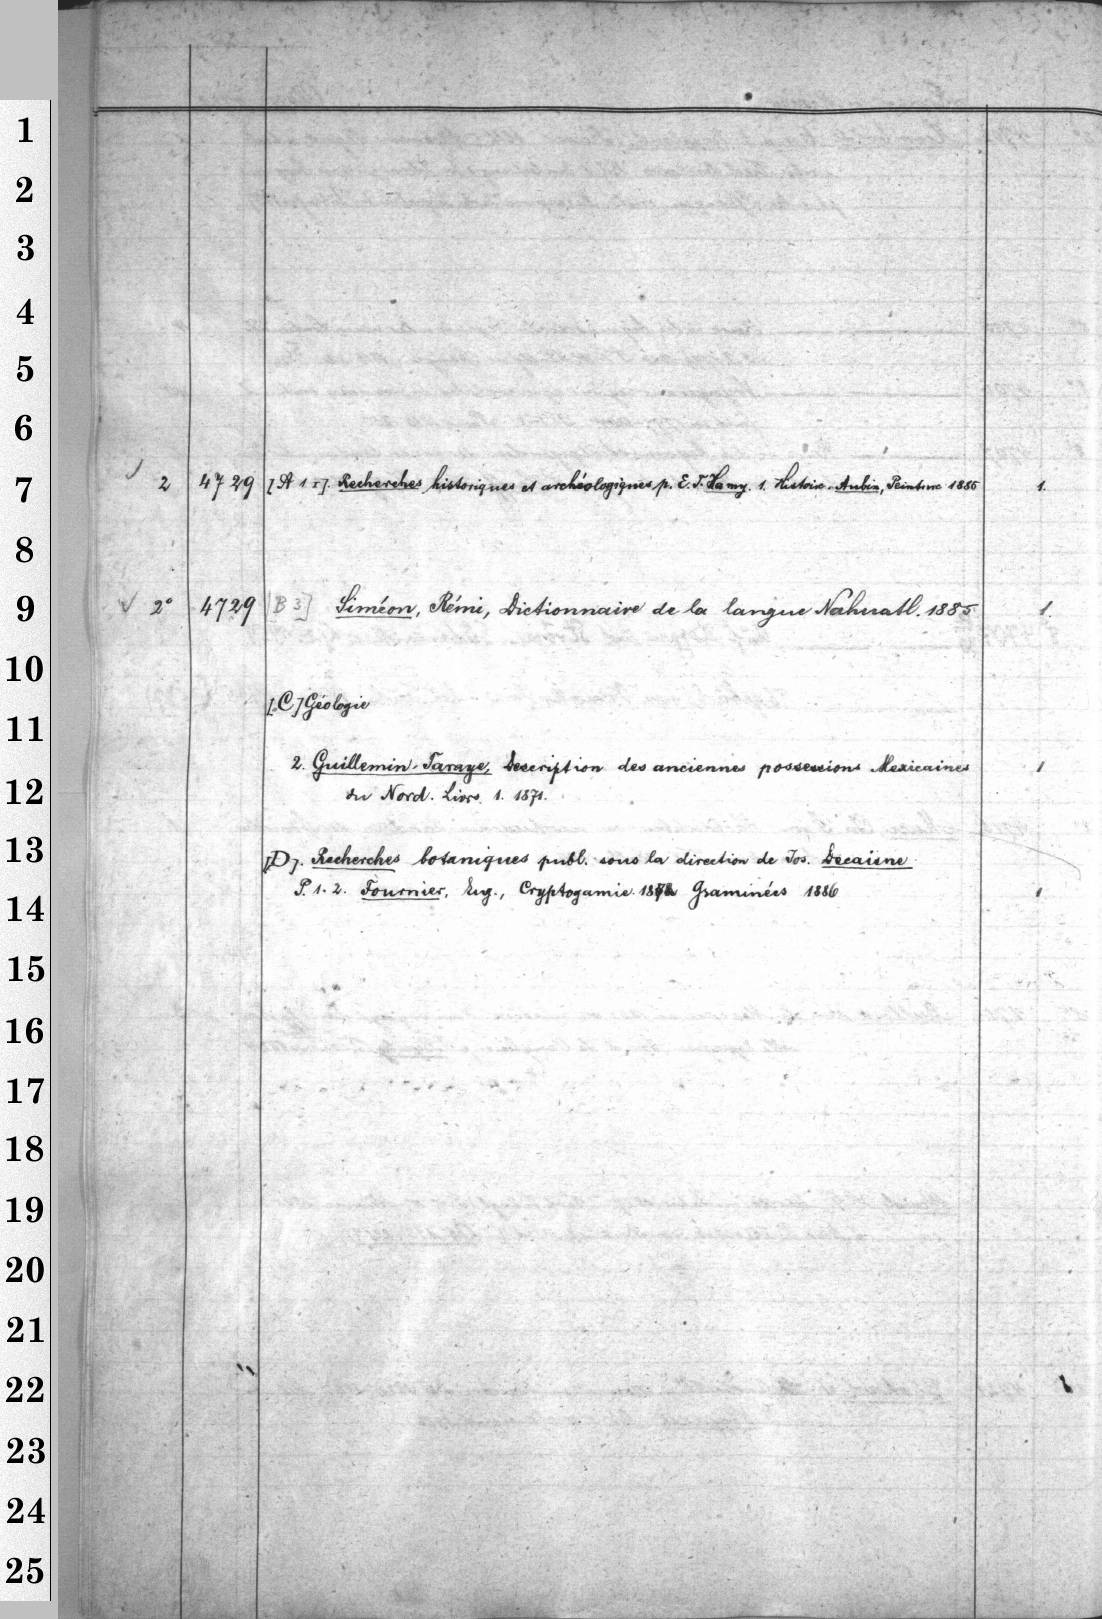 1
2
3
4
5
6
7
2 4729 [A 1 1]. Recherches historiques et archéologiques p. E. T. Hamy. 1. Histoire. Aubin, Peinture 1885 1.
8
9
2° 4729 [B 3] Siméon, Rémi, Dictionnaire de la langue Nahuatl. 1885 1.
10
[C] Géologie
11
2. Guillemin-Taraye, Description des anciennes possessions Mexicaines 1
12
du Nord. Livrs. 1. 1871.
13
[D]. Recherches botaniques publ. sous la direction de Jos. Decaisne
P. 1. 2. Fournier, Eug., Cryptogamie Graminées 1886 1
14
15
16
17
18
19
20
21
22
23
24
25